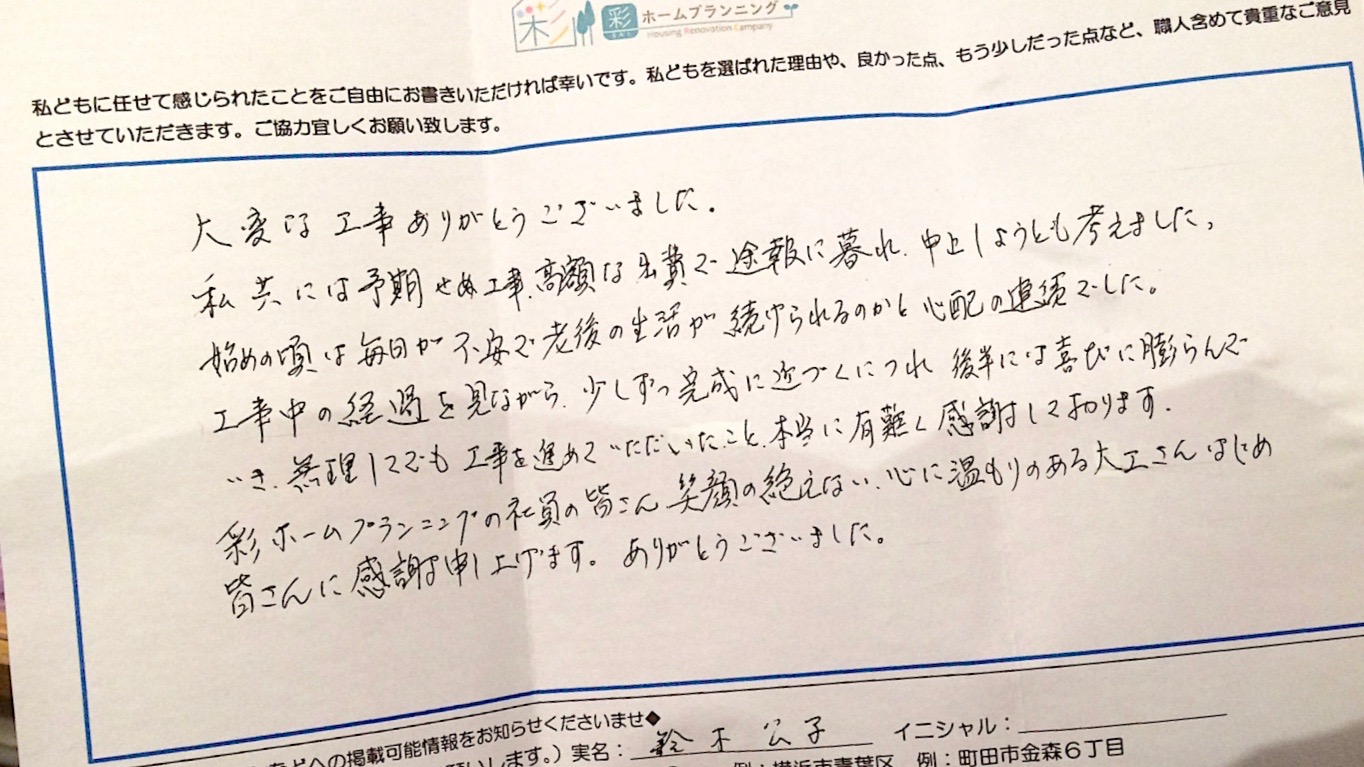 彩 SAI ホームプランニング
Housing Renovation Company
私どもに任せて感じられたことをご自由にお書きいただければ幸いです。私どもを選ばれた理由や、良かった点、もう少しだった点など、職人含めて貴重なご意見
とさせていただきます。ご協力宜しくお願い致します。
大変な工事ありがとうございました。
私共には予期せぬ工事、高額な出費で途報に暮れ、中止しようとも考えました。
始めの頃は毎日が不安で老後の生活が続けられるのかと心配の連続でした。
工事中の経過を見ながら、少しずつ完成に近づくにつれ後半には喜びに膨らんで
いき、無理してでも工事を進めていただいたこと、本当に有難く感謝しております。
彩ホームプランニングの社員の皆さん笑顔の絶えない、心に温もりのある大工さんはじめ
皆さんに感謝申し上げます。ありがとうございました。
などへの掲載可能情報をお知らせくださいませ◆
願いします。）実名：鈴木公子 イニシャル：
例：横浜市青葉区 例：町田市金森６丁目